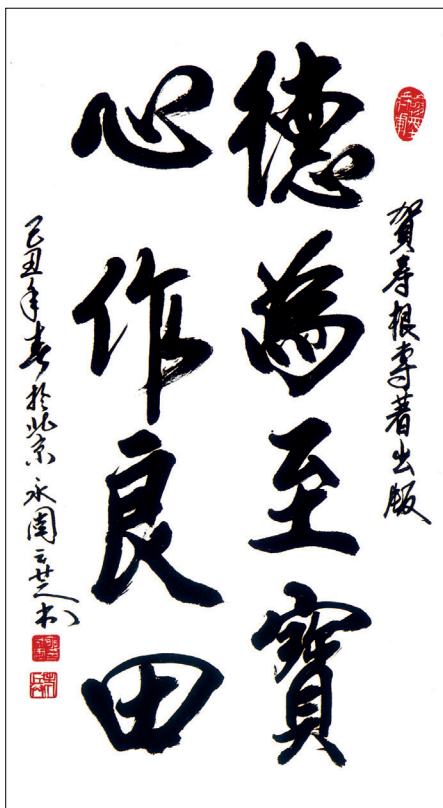 賀寿根專著出版
德為至寶
心作良田
己丑年春於北京 永國云芝书